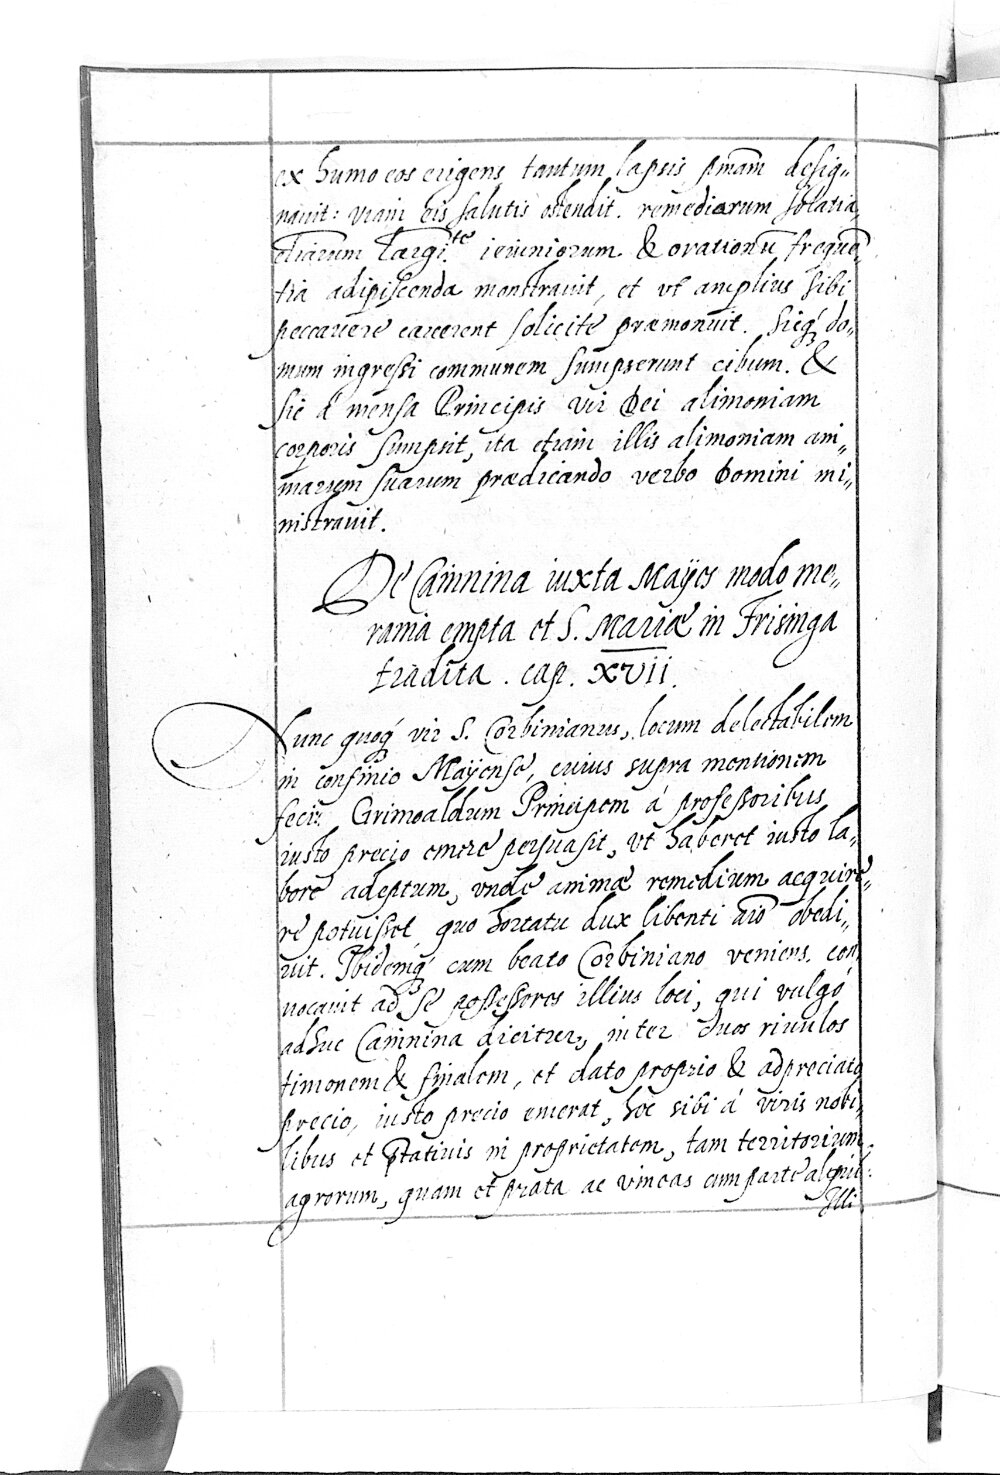 ex humo eos erigens tantum lapsis pmam desig„
navit: viam eis salutis ostendit. remediorum solatia,
etiarum largi.te ieiuniorum & orationū frequē„
tia adipiscenda monstravit, et vt amplius sibi
peccavere carerent solicite præmonuit. sicq́ do„
mum ingressi communem sumpserunt cibum. &
sic á mensa Principis vir Dei alimoniam
corporis sumpsit, ita etiam illis alimoniam ani„
marum suarum prædicando verbo Domini mi„
nistravit.
De Camnina iuxta Maÿes modo me„
rania empta et S. Mariæ in Frisinga
tradita. cap. XVII.
Hunc quoq́ vir S. Corbinianus, locum delectabilem
in confinio Maÿense, cuius supra mentionem
feci: Grimoaldum Principem á professoribus
iusto precio emere persuasit, vt haberet iusto la„
bore adeptum, vnde animæ remedium acquire„
re potuisset, quo hortatu dux libenti aīo obedi„
vit. Ibidemq́ cum beato Corbiniano veniens, con
vocavit ad se possessores illius loci, qui vulgó
adhuc Camnina dicitur, inter duos rivulos
timonem & finalem, et dato proprio & adpreciato
precio, iusto precio emerat, hoc sibi á viris nobi„
libus et stativis in proprietatem, tam territorium
agrorum, quam et prata ac vineas cum parte alpiū:
Illi